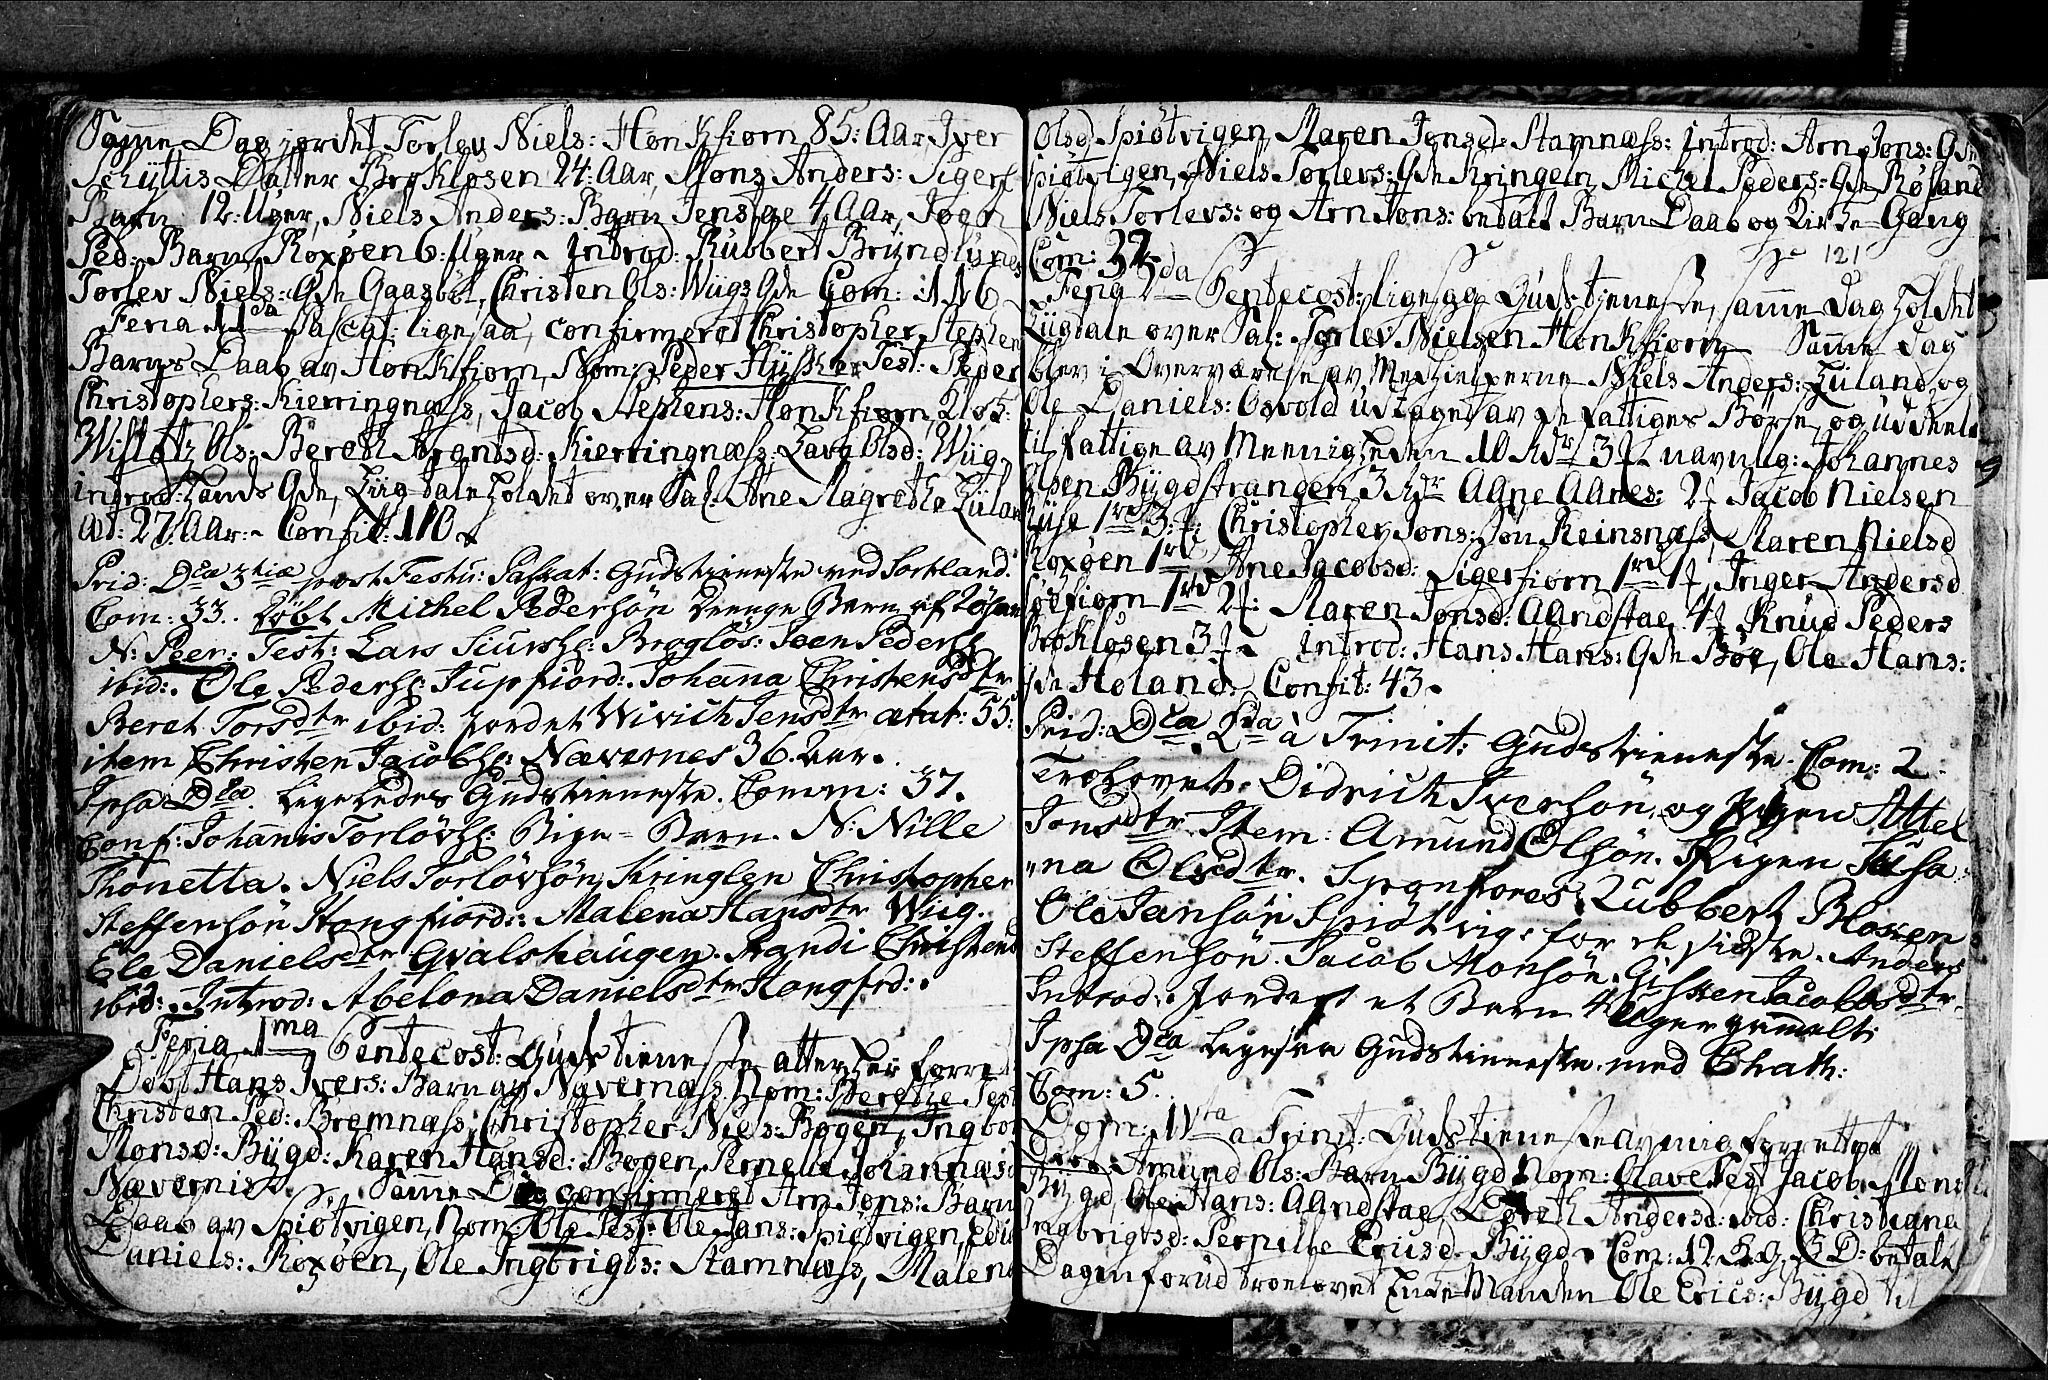 Samme Dag jordet Torlev Niels: Honkfiorn 85: Aar Iver
Schyttis Datter Brokløsen 24: Aar, Mons Anders: Sigerf
Barn 12: Uger, Niels Anders: Barn Jenstae 4 Aar, Joen
Ped: Barn Roxøen 6: Uger ~ Introd: Rubbert Bryndlunds
Torlev Niels: Qde Gaasbøl, Christen Ols: Wiigs Qde Com: 116
Feria IIda Pascat: ligesaa, confirmeret Christopher Stephen
Barns Daab av Honkfiorn, Nom: Peder Test: Peder
Christophers: Kierringnæss, Jacob Stephens: Honkfiorn,
Ols: Bereth Arentsd: Kierringnæss, Lava Olsd: Wiig
introd: Qde, Liigtale holdet over Sal: Ane Magrethe
æt: 27: Aar: ~ Confit: 110
Prid: Dca 3tiæ post Festu: Paskat: Gudstieneste ved Sortland.
Com: 33. Døbt Michel Pedersøn drenge Barn af
N: Peer: Test: Lars Siursss: Brogløs: Joen Peders:
ibid: Ole Peders: Jupfiord: Johanna Christensdtr
Beret Torsdtr ibid: jordet Wivich Jensdtr ætat: 55:
item Christen Jacobs: Nævernes 36. Aar.
Ipsa Dca. ligeledes Gudstieneste. Comm: 37.
Conf: Johannis Torløvs: Pige-Barn. N: Nille
Thonetta. Niels Torløvsøn Kringlen Christopher
Steffensøn Hongfiord: Malena Hansdtr Wiig.
Ele Danielsdtr Gvalshaugen. Randi Christensd
ibid: Introd: Abelona Danielsdtr Hongfrd:
Feria 1ma Pentecost: Gudstieneste atter her forret
Døbt Hans Ivers: Barn av Nævernæss Nom: Berethe Test
Christen Ped: Bremnæss, Christopher Niels: Bogen, Ingbor
Monsd: Bygd: Karen Hansd: Bogen, Pernelle Johannæsd
Nævernis. Samme Dag confirmert Arn Jons: Barn
Daab av Spiøtvigen, Nom: Ole Test: Ole Jans: Spiøtvigen,
Daniels: Roxøen, Ole Ingbrigts: Stamnæss, Malena
Olsd Spiøtvigen Maren Jonsd: Stamnæss: Introd: Arn Jons: Qde
Spiøtvigen, Niels Torlevs: Qde Kringeln Michel Peders: Qde Røsand
Niels Torlevs: og Arn Jons: betalt Barn Daab og Kirke-Gang
Com: 32
121
Feria 2da Pentecost: ligesaa Gudstieneste, samme Dag holdt
Liigtale over Sal: Torlev Nielsen Honkfiorn Samme Dag
blev i Overværelse av Medhielperne Niels Anders: og
Ole Daniels: Osvold udtaget av de fattiges Børse, og uddeelt
til fattige av Meenigheden 10 3 navnlig: Johannes
Olsen Bygdstranden 3 Aane Aanes: 2 Jacob Nielsen
3 Christopher Jons: Reinsnæss, Maren Nielsd
Roxøen 1 Ane Jacobsd: Sigerfiorn 1 1 Inger Andersd
2 Maren Jonsd: Aandstae 4 Knud Peders
Brokløsen 3 ~ Introd: Hans Hans: Qde Bøe, Ole Hans:
Qde Holand, Confit: 43.
Prid: Dca 2da à Trinit: Gudstieneste. Com: 2.
Trolovet. Didrich Iversøn, og Pigen Attel
Jonsdtr. Item: Amund Olsøn. Pigen Susa-
"na Olsdtr. Sponsores: Lubbert Blossen
Ole Jansøn Spiøtvig: for de sidste. Anders
Steffensøn. Jacob Monsøn. Gissken Jacobsdtr.
Introd: Jordest et Barn 4 Uger gamelt.
Ipsa Dca ligesaa Gudstieneste. med Chath:
Com: 5.
Dom: IVta a Trinit: Gudstieneste av mig forrettet
Døbt Amund Ols: Barn Bygd Nom: Olave Test Jacob Mons
Bygd, Ole Hans: Aandstae, Bereth Andersd: ibid: Christiana
Ingbrigtsd: Pernille Ericsd: Bygd. Com: 12 betalt
Dagen forud troelovet Enke-Manden Ole Erics: Bygd til